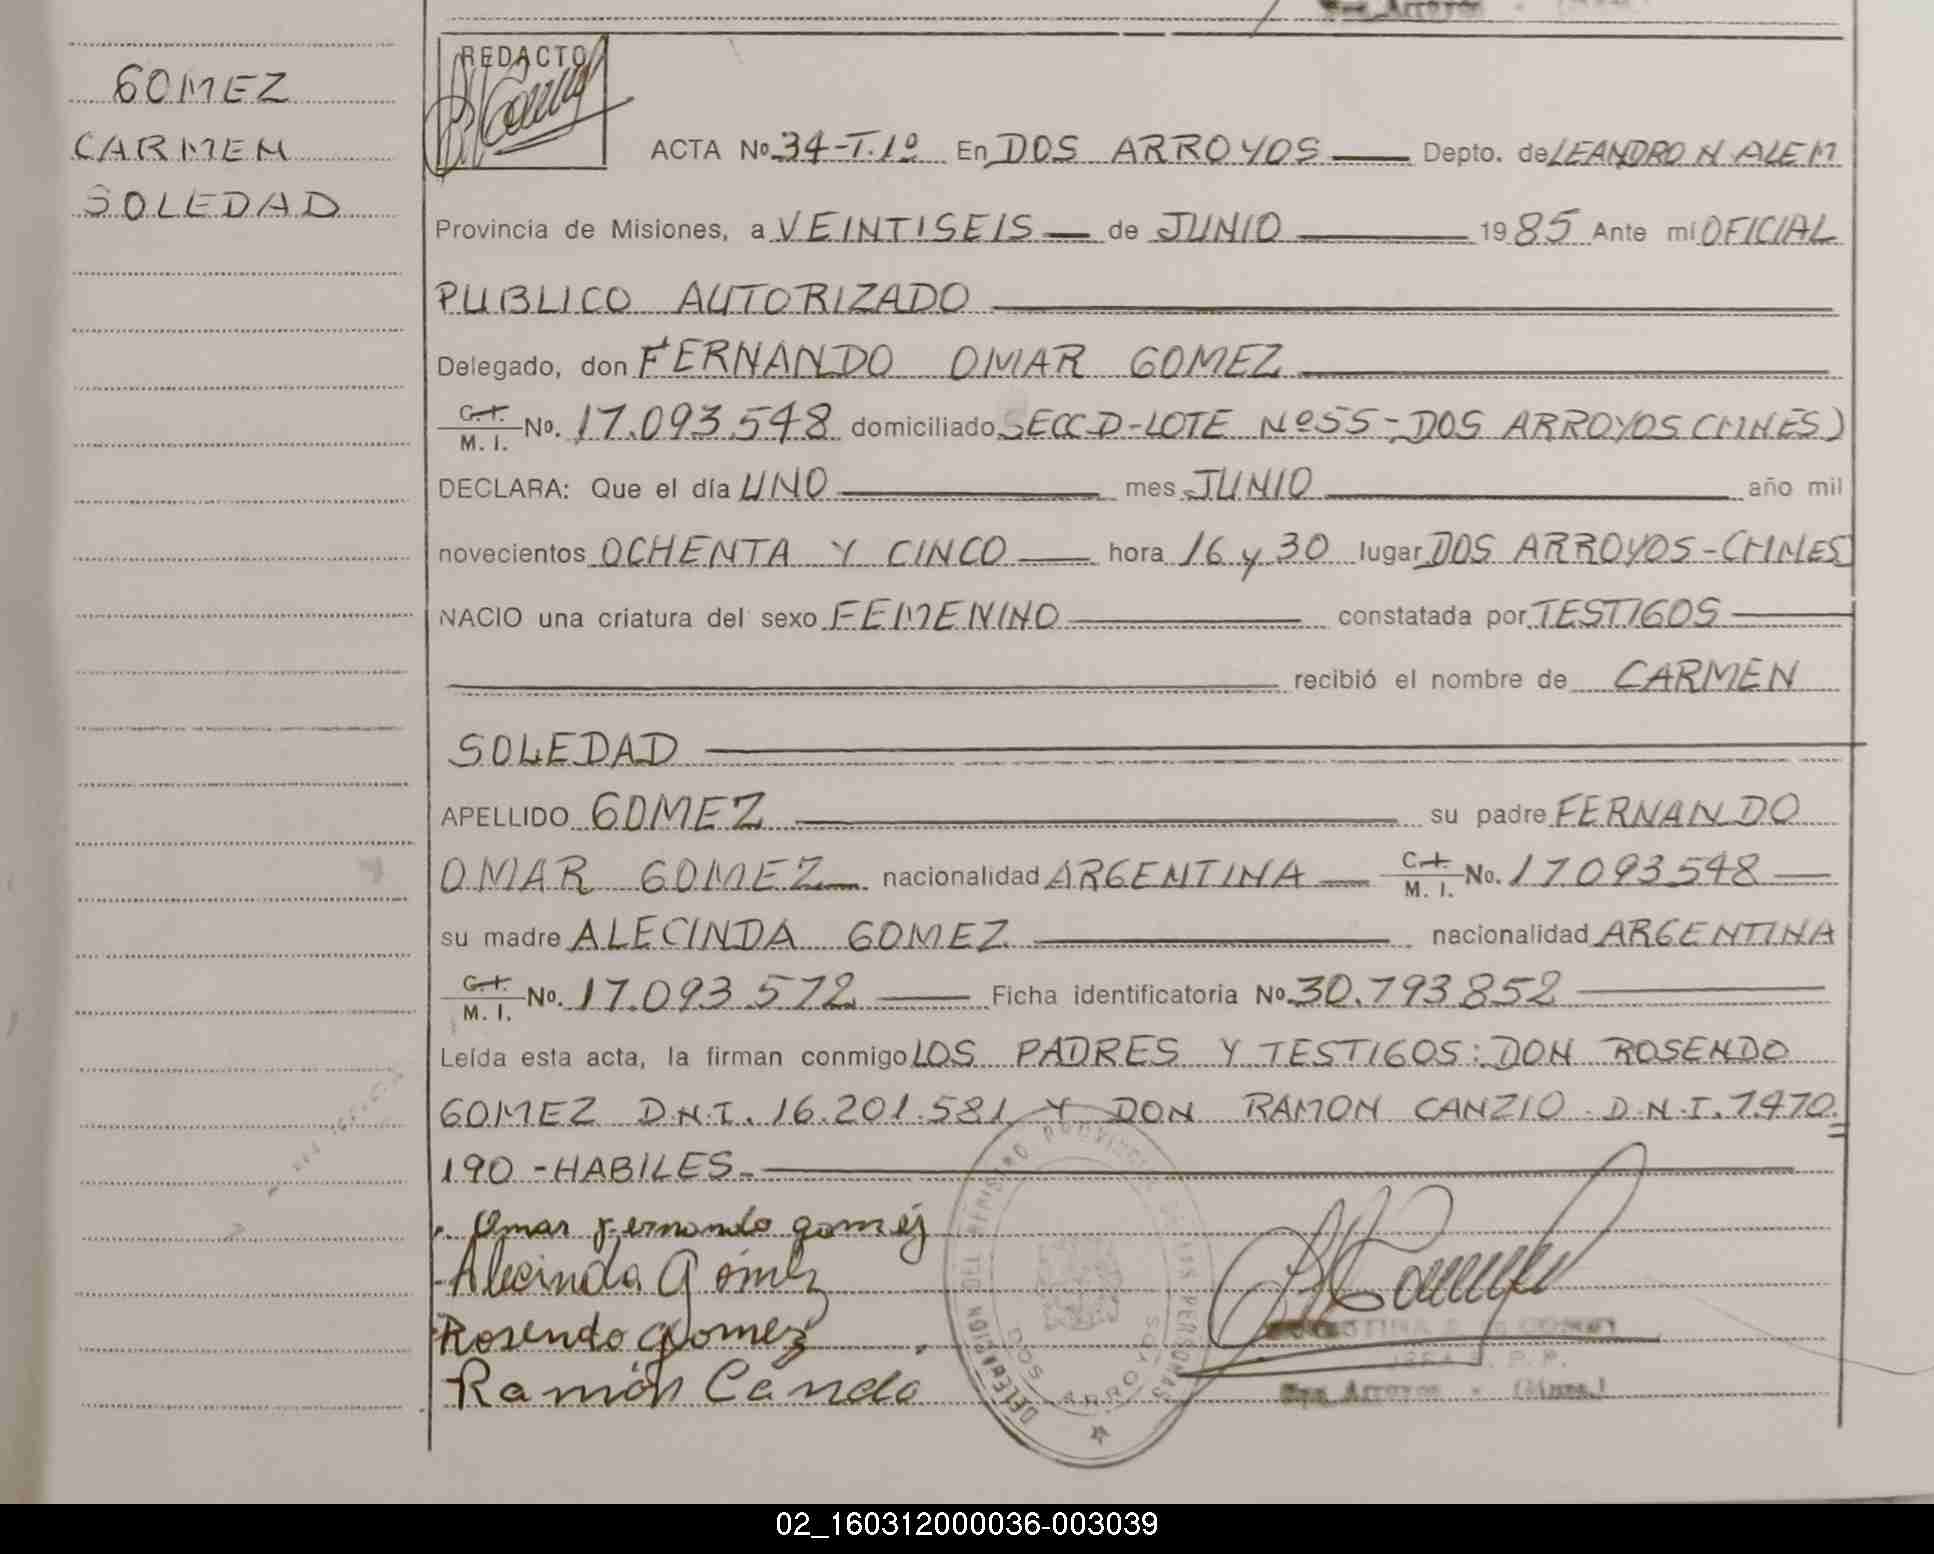 GOMEZ
CARMEN
SOLEDAD
REDACTO
ACTA No. 34-T.1º En DOS ARROYOS Depto. de LEANDRO N ALEM
Provincia de Misiones, a VEINTISEIS de JUNIO 1985 Ante mí OFICIAL
PUBLICO AUTORIZADO
Delegado, don FERNANDO OMAR GOMEZ
C.I. M. I. No. 17.093.548 domiciliado SECC D-LOTE Nº55-DOS ARROYOS (MNES)
DECLARA: Que el día UNO mes JUNIO año mil
novecientos OCHENTA Y CINCO hora 16 y 30 lugar DOS ARROYOS-(MNES)
NACIO una criatura del sexo FEMENINO constatada por TESTIGOS
recibió el nombre de CARMEN
SOLEDAD
APELLIDO GOMEZ su padre FERNANDO
OMAR GOMEZ nacionalidad ARGENTINA C.I. M. I. No. 17093548
su madre ALECINDA GOMEZ nacionalidad ARGENTINA
C.I. M. I. No. 17.093.572 Ficha identificatoria No. 30.793.852
Leída esta acta, la firman conmigo LOS PADRES Y TESTIGOS: DON ROSENDO
GOMEZ D.N.I. 16.201.581 Y DON RAMON CANZIO D.N.I. 7.470.
190 -HABILES-
Omar Fernando gomez
Alecinda Gómez
Rosendo Gomez
Ramón
DELEGACION DEL REGISTRO PROVINCIAL DE LAS PERSONAS
DOS ARROYOS
Dos Arroyos - (Mnes.)
02_160312000036-003039